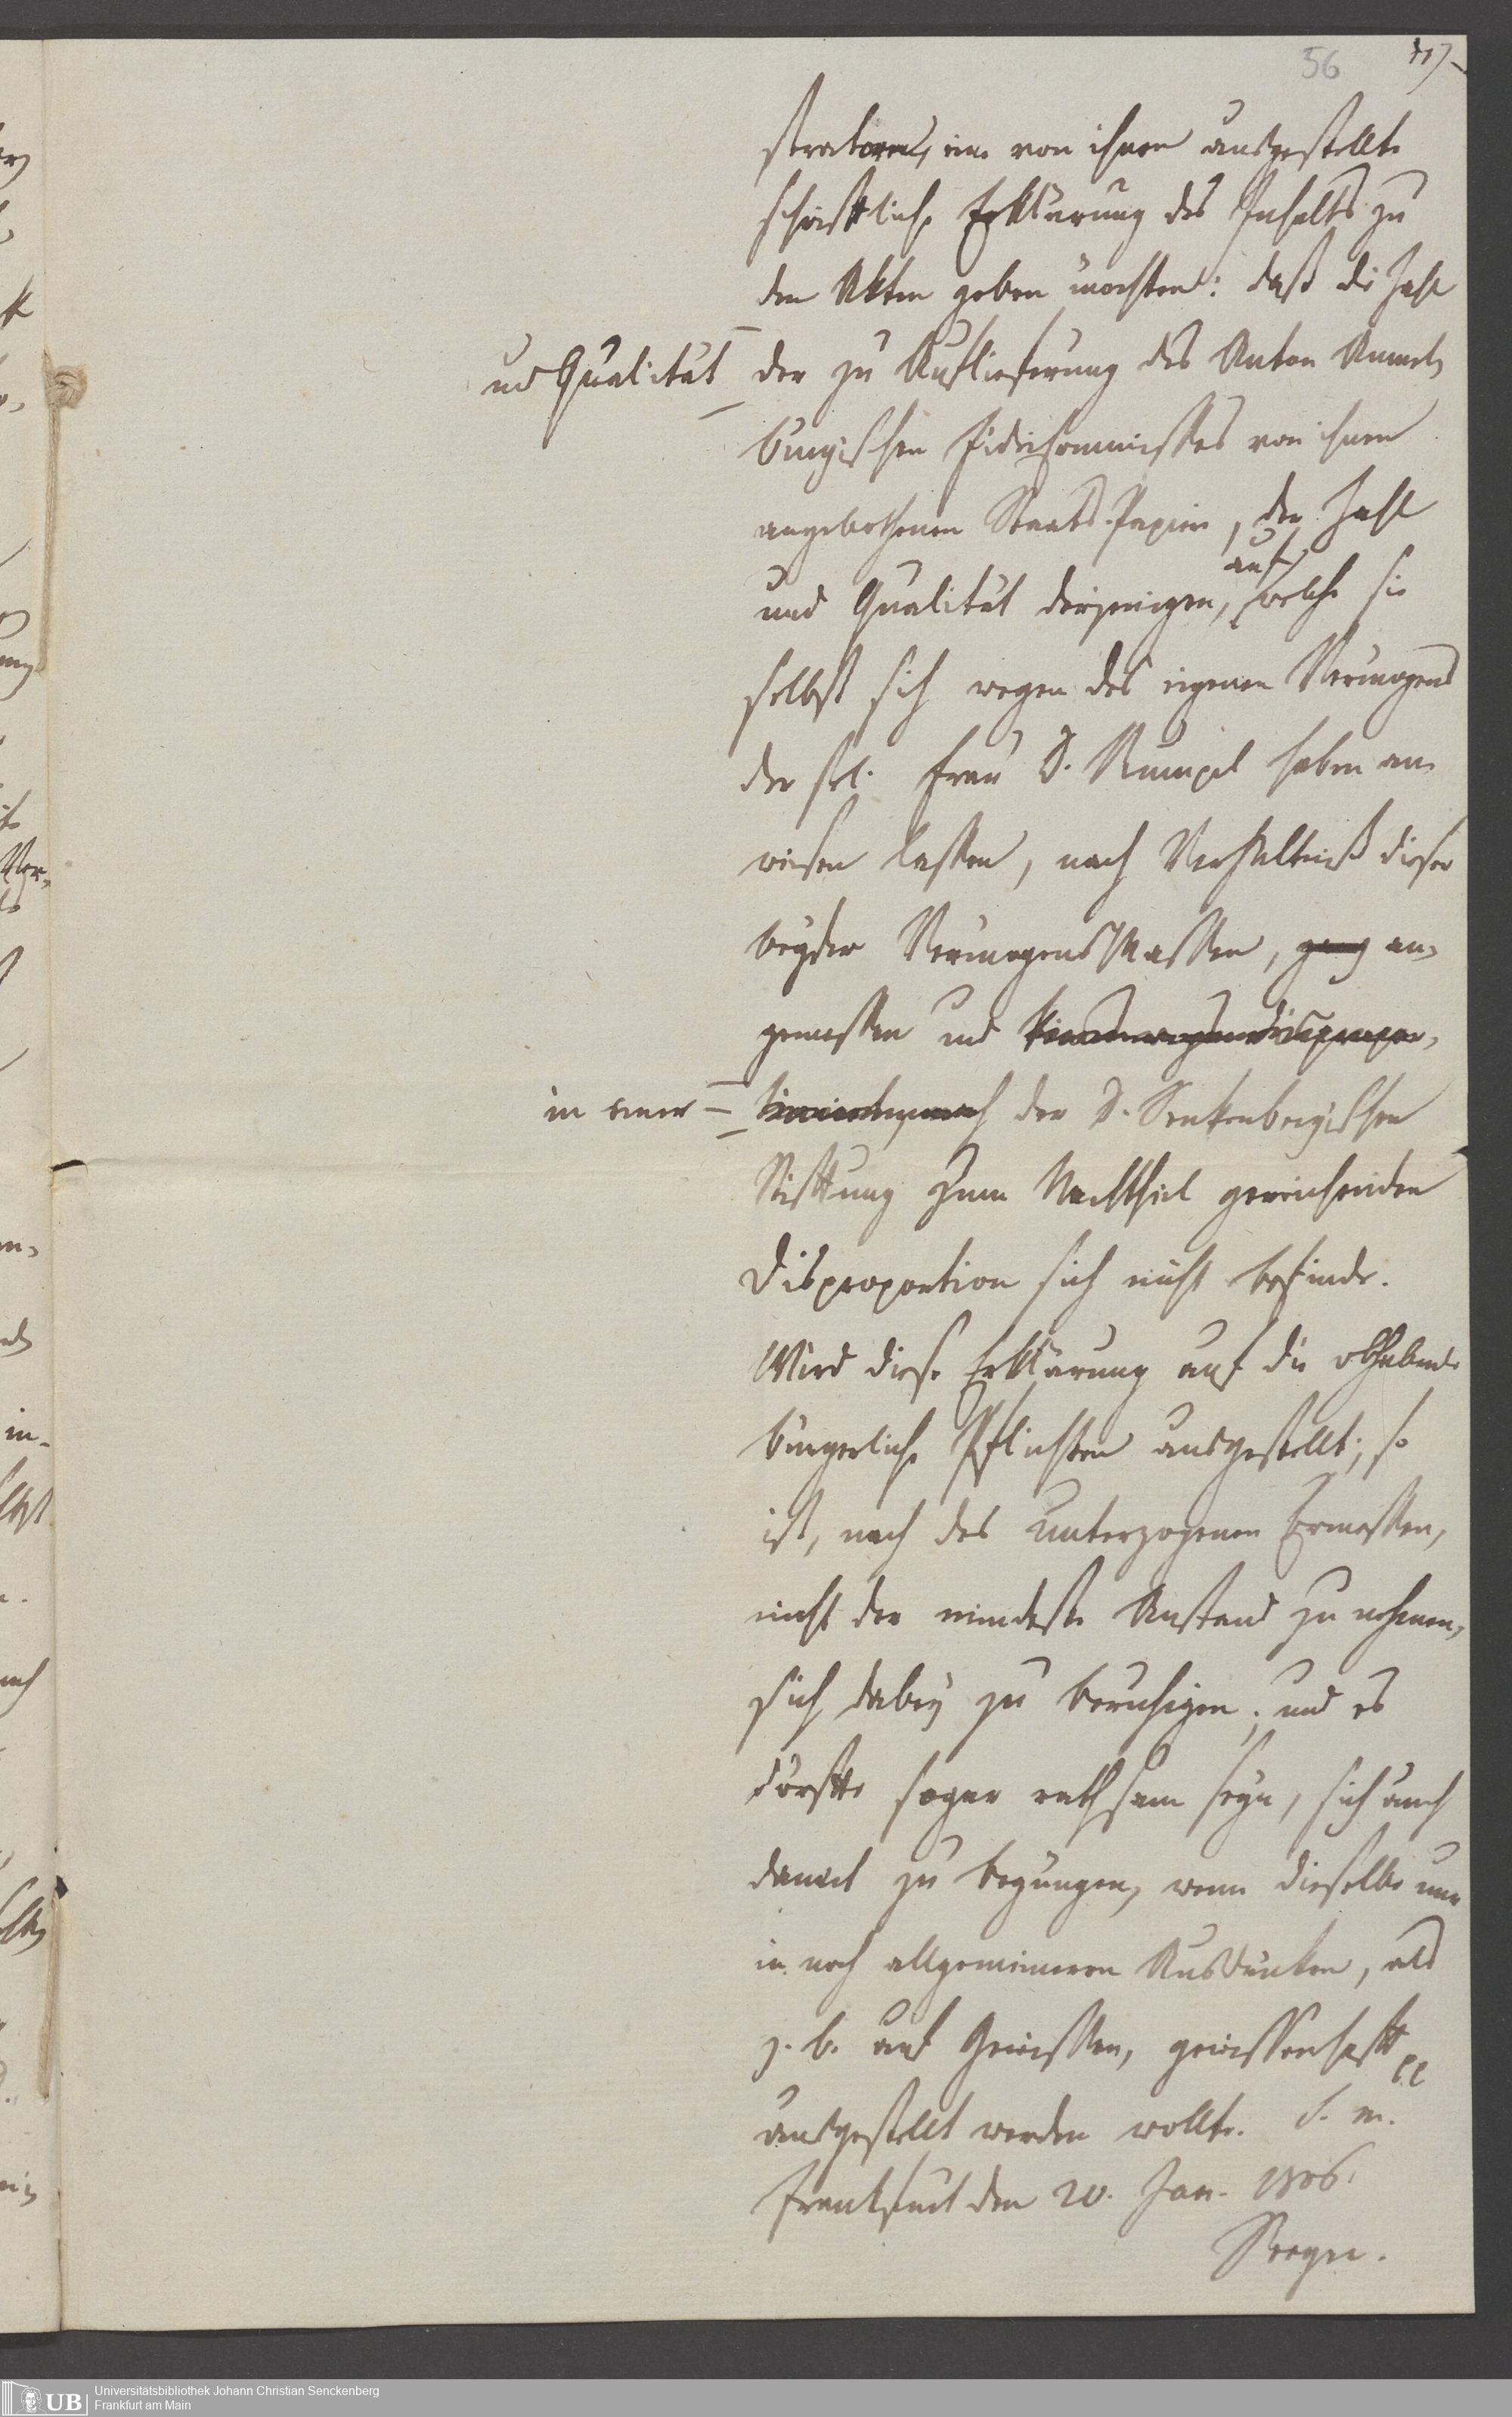 56
stratoren, eine von ihnen ausgestellte
schriftliche Erklärung des Inhalts zu
den Akten geben möchten: daß die Zahl
und Qualität der zu Auslieferung des Anton
burgischen Fideicommisses von ihnen
angebothenen Staats-Papiere, der Zahl
und Qualität derjenigen, auf welche sie
selbst sich wegen des eigenen Vermögens
der sel. Frau D. Rümpel haben an-
weisen lassen, nach Verhältniß dieser
beyder Vermögens Massen, ganz an-
gemessen und keineswegs in dispropor-
in einer der D. Senkenbergischen
Stiftung zum Nachtheil gereichenden
Disproportion sich nicht befinde.
Wird diese Erklärung auf die obhabende
bürgerliche Pflichten ausgestellt; so
ist, nach des unterzogenen Ermessen,
nicht der mindeste Anstand zu nehmen,
sich dabey zu beruhigen; und es
dörfte sogar rathsam seyn, sich auch
damit zu begnügen, wenn dieselbe nur
in noch allgemeineren Ausdrücken, als
z. b. auf Gewissen, gewissenhaft pp
ausgestellt werden wollte. S. m.
Frankfurt den 20. Jan. 1806.
Seeger.
UB
Universitätsbibliothek Johann Christian Senckenberg
Frankfurt am Main